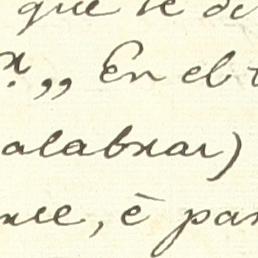 que se de
x.„ En el t
alabrar)
nce, è par